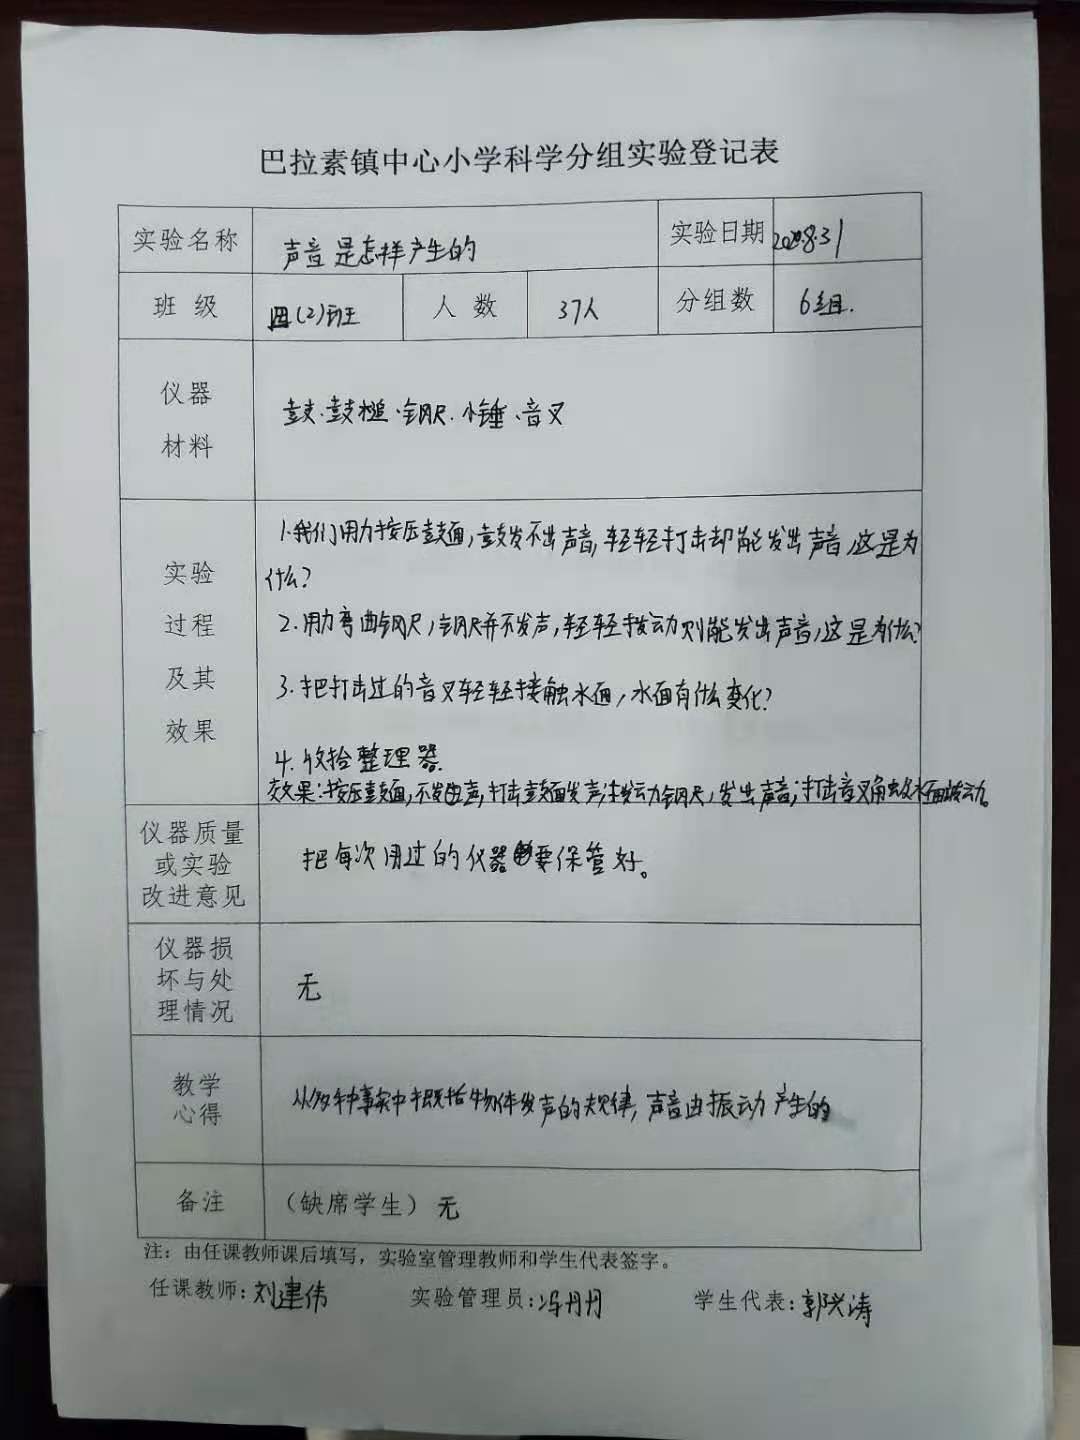 巴拉素镇中心小学科学分组实验登记表
实验名称 声音是怎样产生的 实验日期
班 级 四(2)班 人 数 37人 分组数 6组.
仪器
材料
鼓、鼓槌、钢尺、小锤、音叉
实验
过程
及其
效果
1.我们用力按压鼓面,鼓发不出声音,轻轻打击却能发出声音,这是为
什么?
2.用力弯曲钢尺,钢尺并不发声,轻轻拨动则能发出声音,这是为什么?
3.把打击过的音叉轻轻接触水面,水面有什么变化?
4.收拾整理器
效果:按压鼓面,不发出声,打击鼓面发声;拨动钢尺,发出声音;打击音叉触及水面
仪器质量
或实验
改进意见
把每次用过的仪器要保管好。
仪器损
坏与处
理情况
无
教学
心得
从多种事实中概括物体发声的规律,声音由振动产生的
备注 (缺席学生) 无
注:由任课教师课后填写,实验室管理教师和学生代表签字。
任课教师:刘建伟 实验管理员:冯丹丹 学生代表:郭兴涛